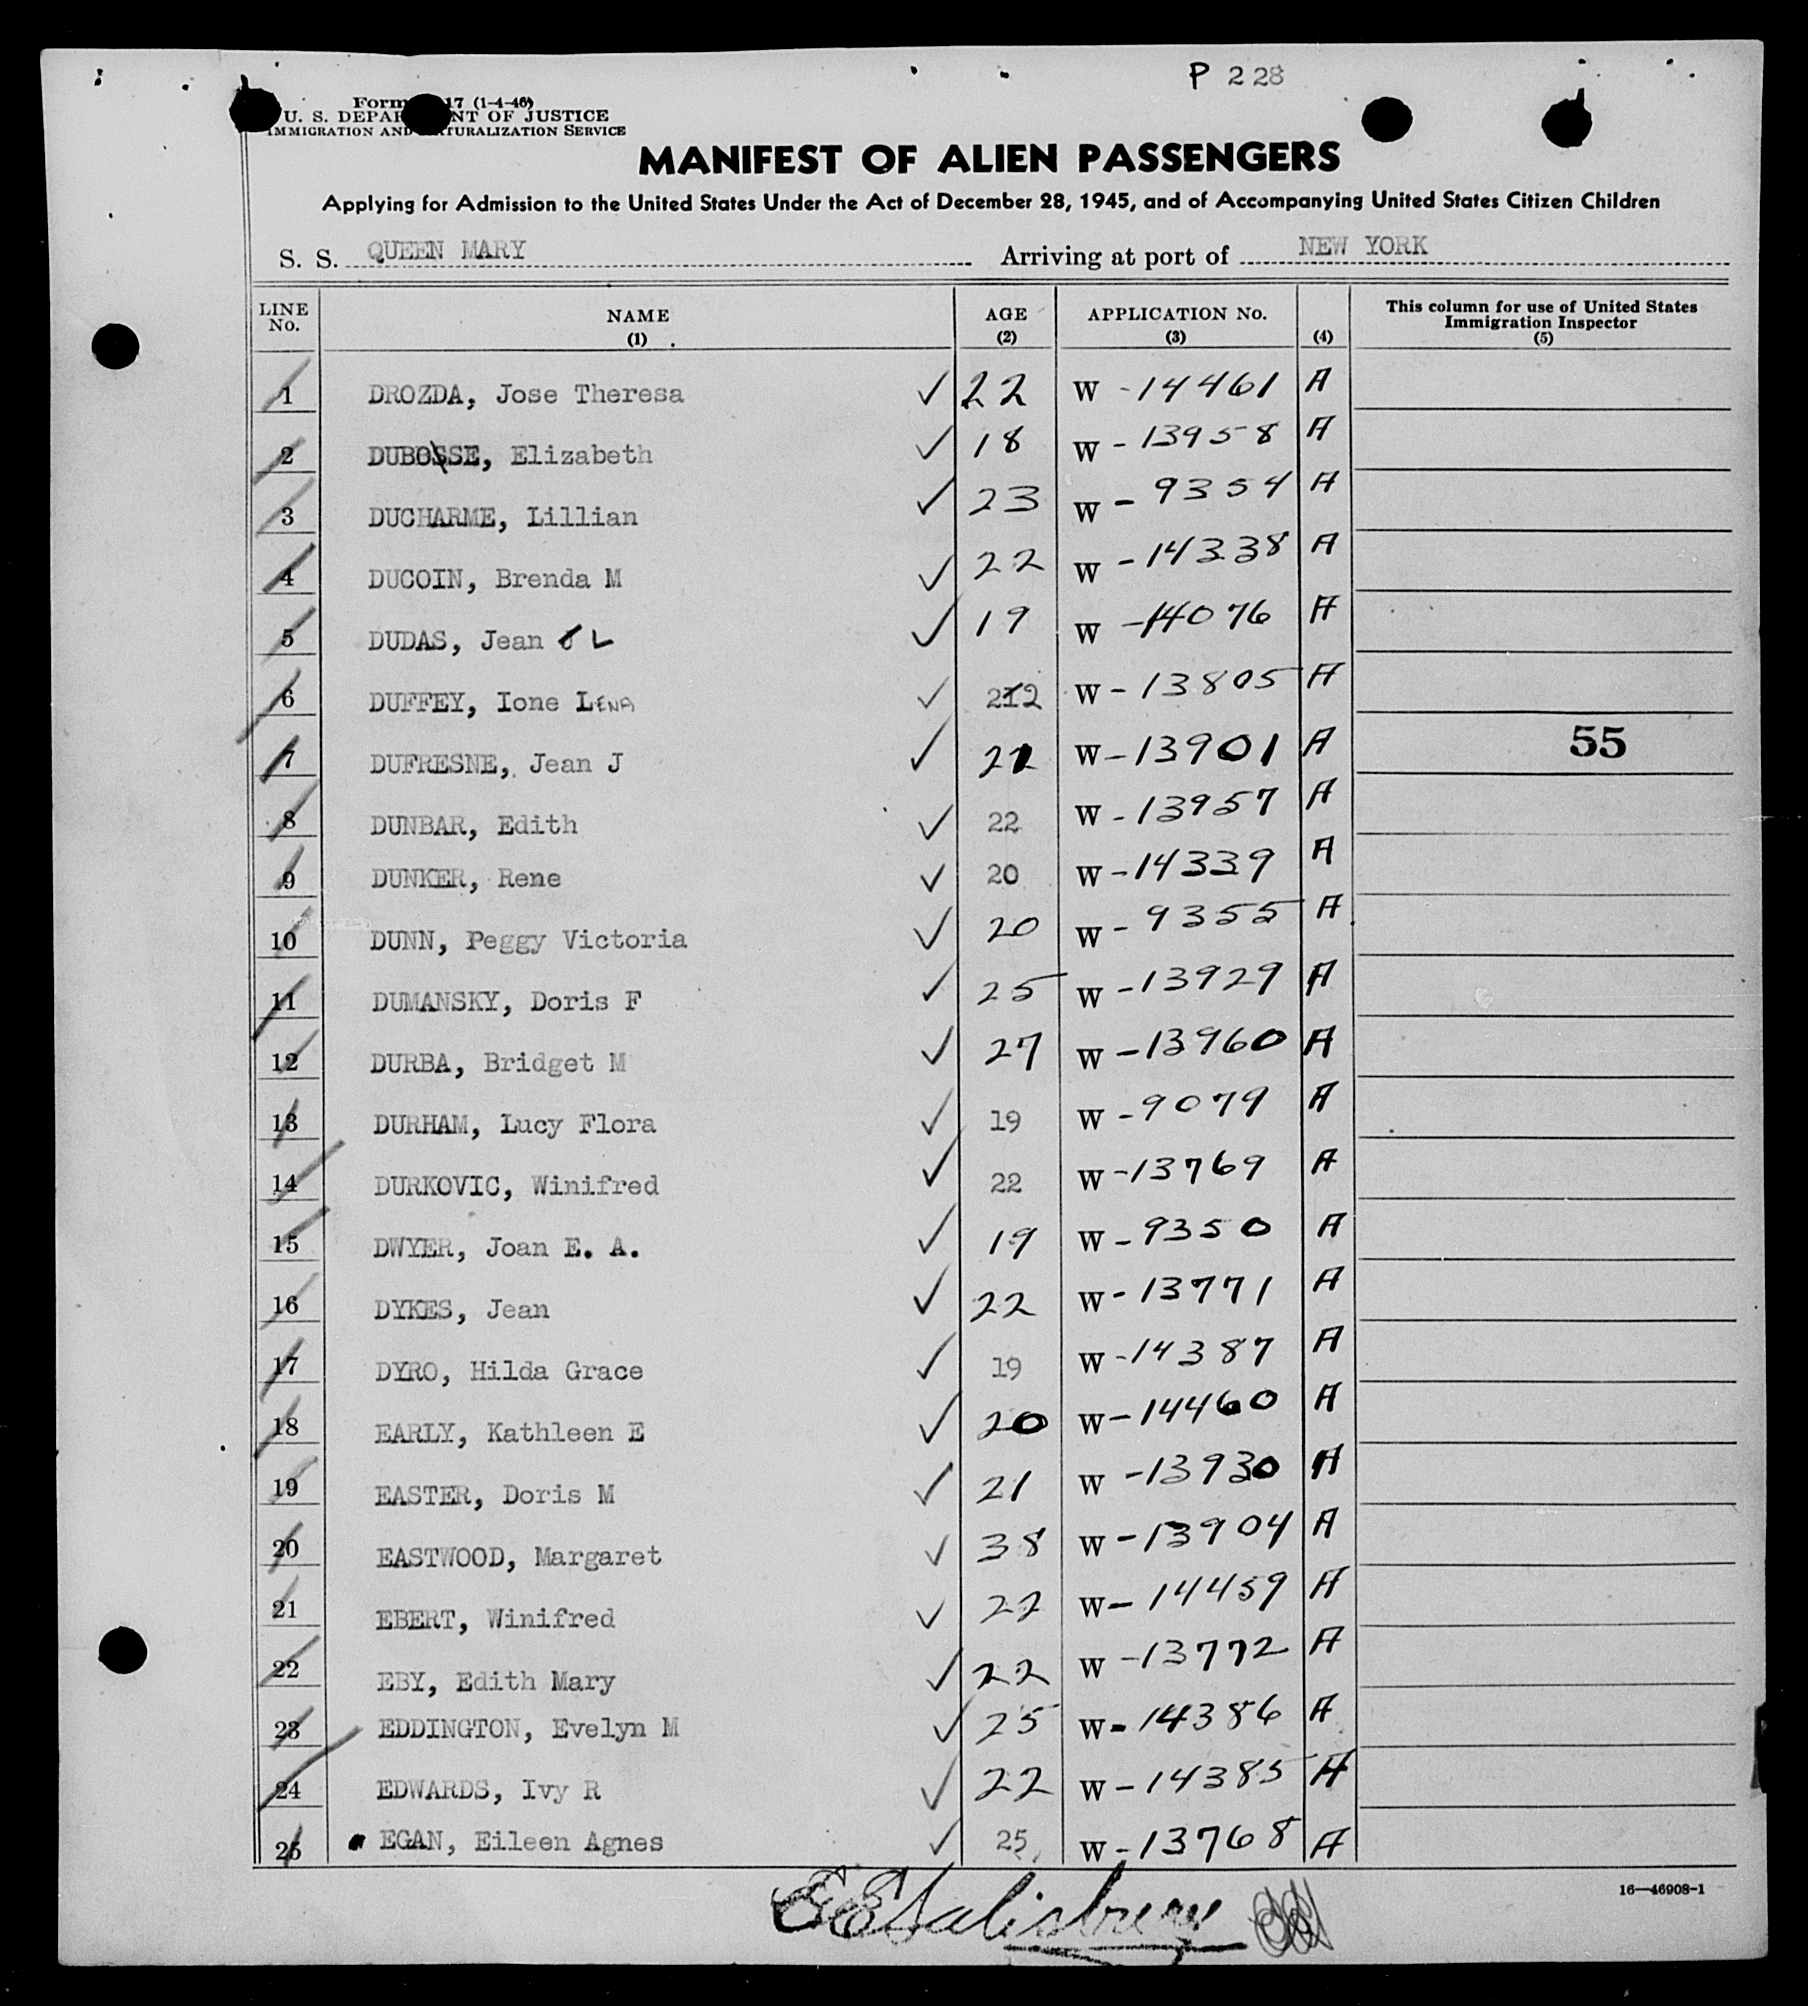 P 228
Form 17 (1-4-46)
U. S. DEPARTMENT OF JUSTICE
IMMIGRATION AND NATURALIZATION SERVICE
MANIFEST OF ALIEN PASSENGERS
Applying for Admission to the United States Under the Act of December 28, 1945, and of Accompanying United States Citizen Children
S. S. QUEEN MARY Arriving at port of NEW YORK
LINE No. NAME (1) AGE (2) APPLICATION No. (3) (4) This column for use of United States Immigration Inspector (5)
1 DROZDA, Jose Theresa ✓ 22 W -14461 A
2 DUBOSSE, Elizabeth ✓ 18 W -13958 A
3 DUCHARME, Lillian ✓ 23 W - 9354 A
4 DUCOIN, Brenda M ✓ 22 W -14338 A
5 DUDAS, Jean L ✓ 19 W -14076 A
6 DUFFEY, Ione LENA ✓ 22 W -13805 A
7 DUFRESNE, Jean J ✓ 21 W -13901 A 55
8 DUNBAR, Edith ✓ 22 W -13957 A
9 DUNKER, Rene ✓ 20 W -14339 A
10 DUNN, Peggy Victoria ✓ 20 W - 9355 A
11 DUMANSKY, Doris F ✓ 25 W -13929 A
12 DURBA, Bridget M ✓ 27 W -13960 A
13 DURHAM, Lucy Flora ✓ 19 W -9079 A
14 DURKOVIC, Winifred ✓ 22 W -13769 A
15 DWYER, Joan E. A. ✓ 19 W -9350 A
16 DYKES, Jean ✓ 22 W -13771 A
17 DYRO, Hilda Grace ✓ 19 W -14387 A
18 EARLY, Kathleen E ✓ 20 W -14460 A
19 EASTER, Doris M ✓ 21 W -13930 A
20 EASTWOOD, Margaret ✓ 38 W -13904 A
21 EBERT, Winifred ✓ 22 W -14459 A
22 EBY, Edith Mary ✓ 22 W -13772 A
23 EDDINGTON, Evelyn M ✓ 25 W -14386 A
24 EDWARDS, Ivy R ✓ 22 W -14385 A
25 EGAN, Eileen Agnes ✓ 25 W -13768 A
16—46908-1
E E Salisbury